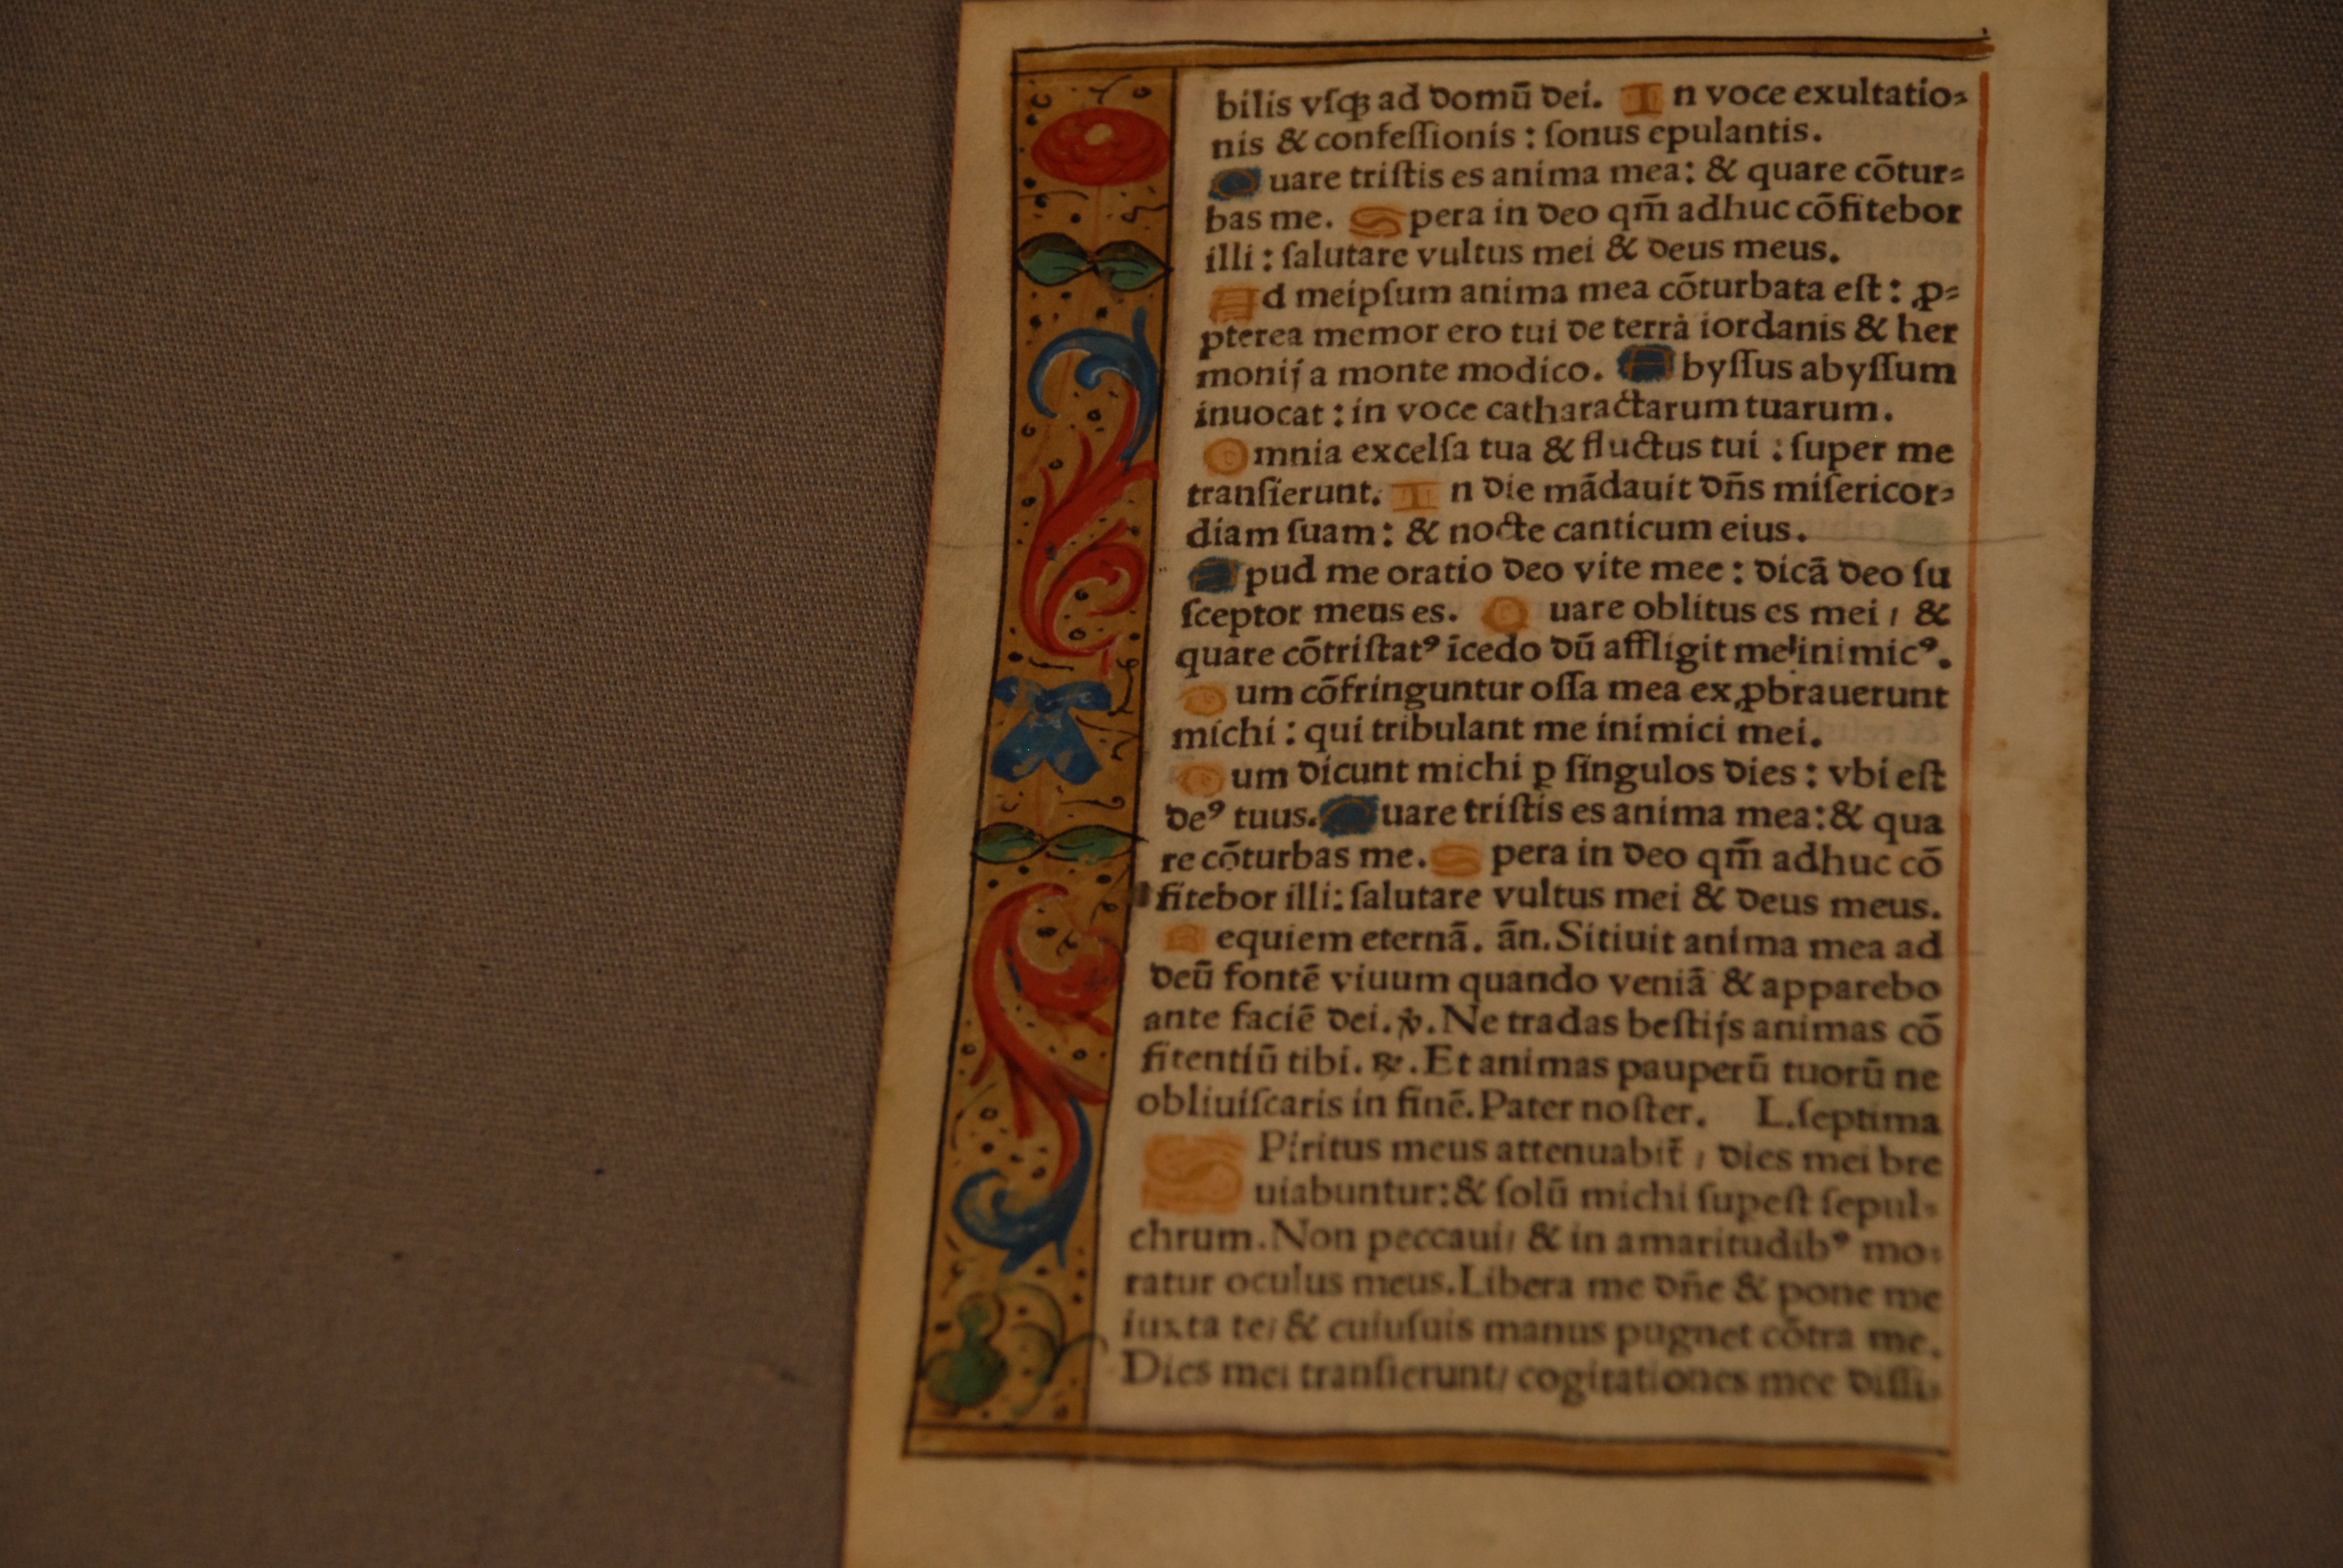 bilis vſqꝫ ad domū dei. In voce exultatio⸗
nis & confeſſionis : ſonus epulantis.
Quare triſtis es anima mea: & quare cōtur⸗
bas me. Spera in deo qm̄ adhuc cōfitebor
illi : ſalutare vultus mei & deus meus.
Ad meipſum anima mea cōturbata eſt : ꝓ⸗
pterea memor ero tui de terra iordanis & her
monij a monte modico. Abyſſus abyſſum
inuocat : in voce catharactarum tuarum.
Omnia excelſa tua & fluctus tui : ſuper me
tranſierunt. In die mādauit dn̄s miſericor⸗
diam ſuam: & nocte canticum eius.
Apud me oratio deo vite mee : dicā deo ſu
ſceptor meus es. Quare oblitus es mei / &
quare cōtriſtatꝰ īcedo dū affligit me inimicꝰ.
Dum cōfringuntur oſſa mea exꝓbrauerunt
michi : qui tribulant me inimici mei.
Dum dicunt michi ꝑ ſingulos dies : vbi eſt
deꝰ tuus. Quare triſtis es anima mea: & qua
re cōturbas me. Spera in deo qm̄ adhuc cō
fitebor illi: ſalutare vultus mei & deus meus.
Requiem eternā. ān. Sitiuit anima mea ad
deū fontē viuum quando veniā & apparebo
ante faciē dei. ℣. Ne tradas beſtijs animas cō
fitentiū tibi. ℟. Et animas pauperū tuorū ne
obliuiſcaris in finē. Pater noſter. L. ſeptima
SPiritus meus attenuabit̄ / dies mei bre
uiabuntur: & ſolū michi ſupeſt ſepul⸗
chrum. Non peccaui/ & in amaritudibꝰ mo⸗
ratur oculus meus. Libera me dn̄e & pone me
iuxta te/ & cuiuſuis manus pugnet cōtra me.
Dies mei tranſierunt/ cogitationes mee diſſi⸗